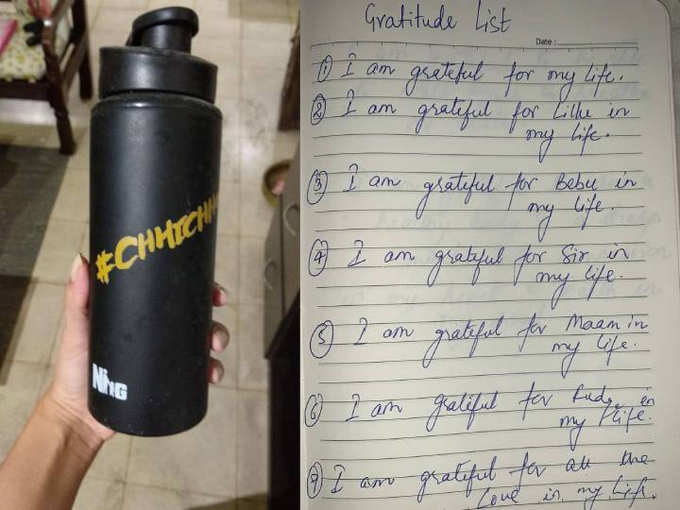 #CHHICHH
NG
Gratitude List
Date :
① I am grateful for my life.
② I am grateful for Lillu in
my life.
③ I am grateful for Bebu in
my life.
④ I am grateful for Sir in
my life.
⑤ I am grateful for Maam in
my life.
⑥ I am grateful for in
my life.
⑦ I am grateful for all the
Love in my life.